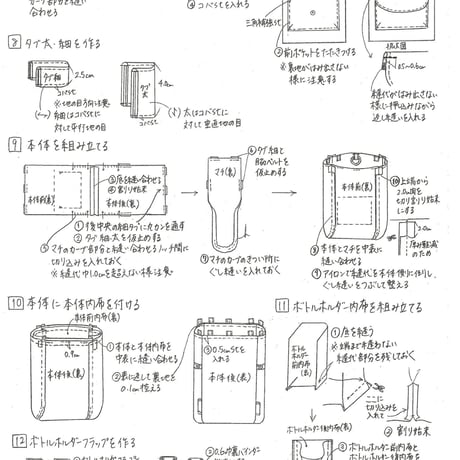 わせる
④コバstを入れる
三角補強st
⑦前ポケットをたたきつける
※裏地がはみ出さない
様に注意する
拡大図
0.5~0.6cm
縫代がはみ出さない
様に押込みながら
返し縫いを入れる
8 タブ太・細を作る
タブ細
2.5cm
コバst
タブ太
コバst
※地の目方向に注意
細はコバstに
対して平行地の目
太はコバstに
対して垂直地の目
9 本体を組み立てる
本体前(裏)
③底を縫い合わせる
④割り始末
本体後(裏)
①後中央の細タブにカンを通す
②タブ細・太を仮止めする
⑤マチのカーブ部分と縫い合わせるノッチ間に
切り込みを入れておく
※縫代巾1.0cmを超えない様に注意
マチ(裏)
⑥タブ細と
脇ベルトを
仮止めする
⑦マチのカーブのきつい所に
ぐし縫いを入れておく
本体前(裏)
⑩上端から
2.0cm間を
切り割り始末
にする
2.0cm
厚み軽減
のため
⑧本体とマチを中表に
縫い合わせる
⑨アイロンで縫代を本体側に倒し、
ぐし縫いをつぶして整える
10 本体に本体内布を付ける
本体前内布(裏)
0.9cm
本体後(裏)
①本体と本体内布を
中表に縫い合わせる
②表に返して裏地を
0.1cm控える
③0.5cmstを
入れる
本体後(表)
11 ボトルホルダー内布を組み立てる
ボトル
ホルダー
前内布
(裏)
①底を縫う
※両端まで縫わない
縫代部分を残しておく
ここに
切り込みを
入れて
②割り始末
ボトルホルダー後内布(裏)
③ボトルホルダー前内布と
ボトルホルダー後内布を
12 ボトルホルダーフラップを作る
②0.6cm巾裏バインダー